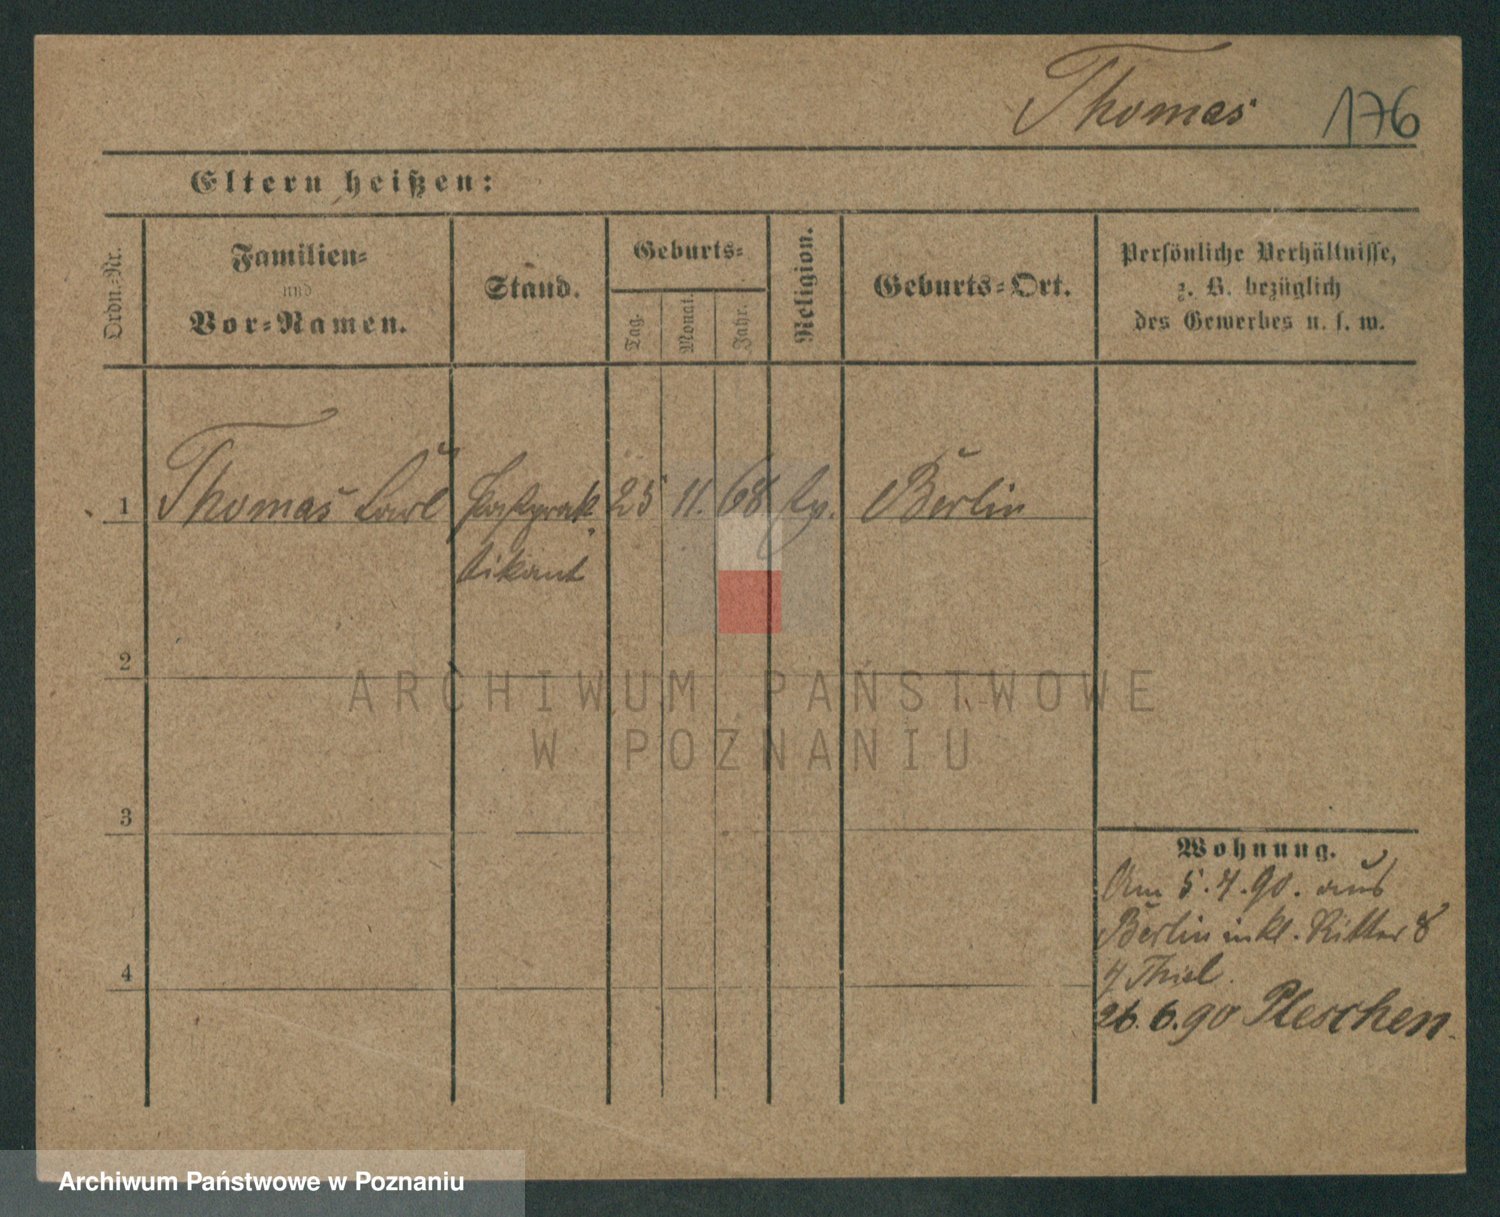 Thomas 176
Eltern heißen:
Ordn.-Nr.
Familien-
und
Vor-Namen.
Stand.
Geburts-
Tag.
Monat.
Jahr.
Religion.
Geburts-Ort.
Persönliche Verhältnisse,
z. B. bezüglich
des Gewerbes u. s. w.
1 Thomas Carl 25 11. 68 Berlin
tikant
2
ARCHIWUM PAŃSTWOWE
W POZNANIU
3
Wohnung.
Am 5.4.90. aus
Berlin inkl. Ritter 8
4
Thiel.
26.6.90 Pleschen.
Archiwum Państwowe w Poznaniu